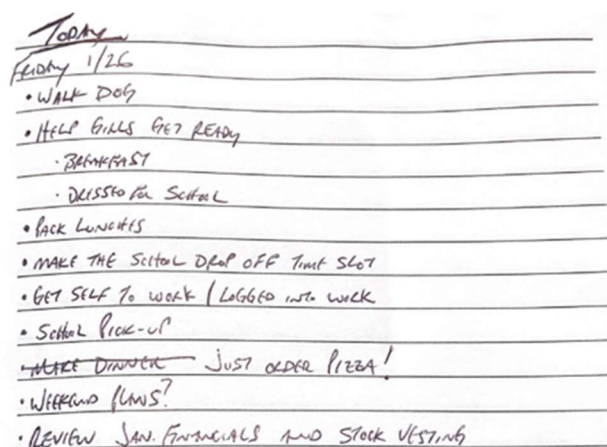 TODAY
FRIDAY 1/26
• WALK DOG
• HELP GIRLS GET READY
• BREAKFAST
• DRESSED FOR SCHOOL
• PACK LUNCHES
• MAKE THE SCHOOL DROP OFF TIME SLOT
• GET SELF TO WORK / LOGGED INTO WORK
• SCHOOL PICK-UP
• MAKE DINNER JUST ORDER PIZZA!
• WEEKEND PLANS?
• REVIEW JAN. FINANCIALS AND STOCK VESTING